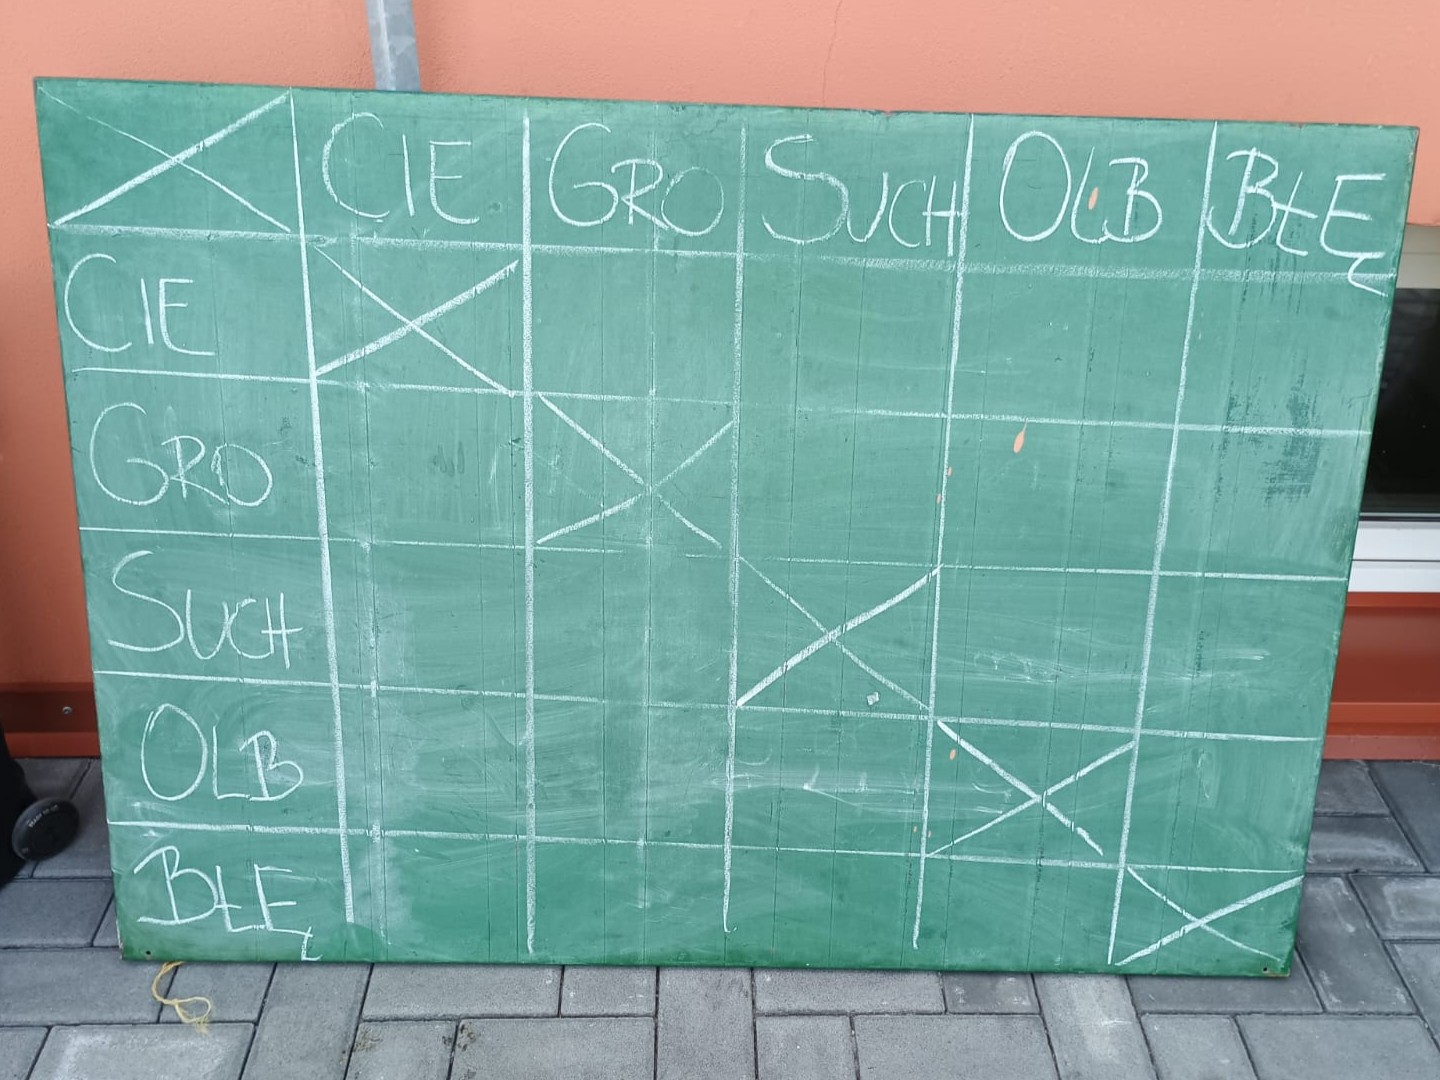 CIE GRO SUCH OLB BŁĘ
CIE
GRO
SUCH
OLB
BŁĘ